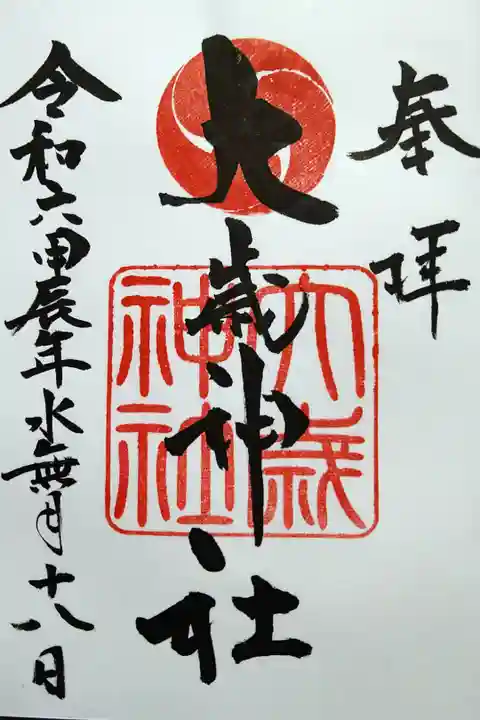 奉拝
大歳神社
大歳
神社
令和六甲辰年水無月十八日